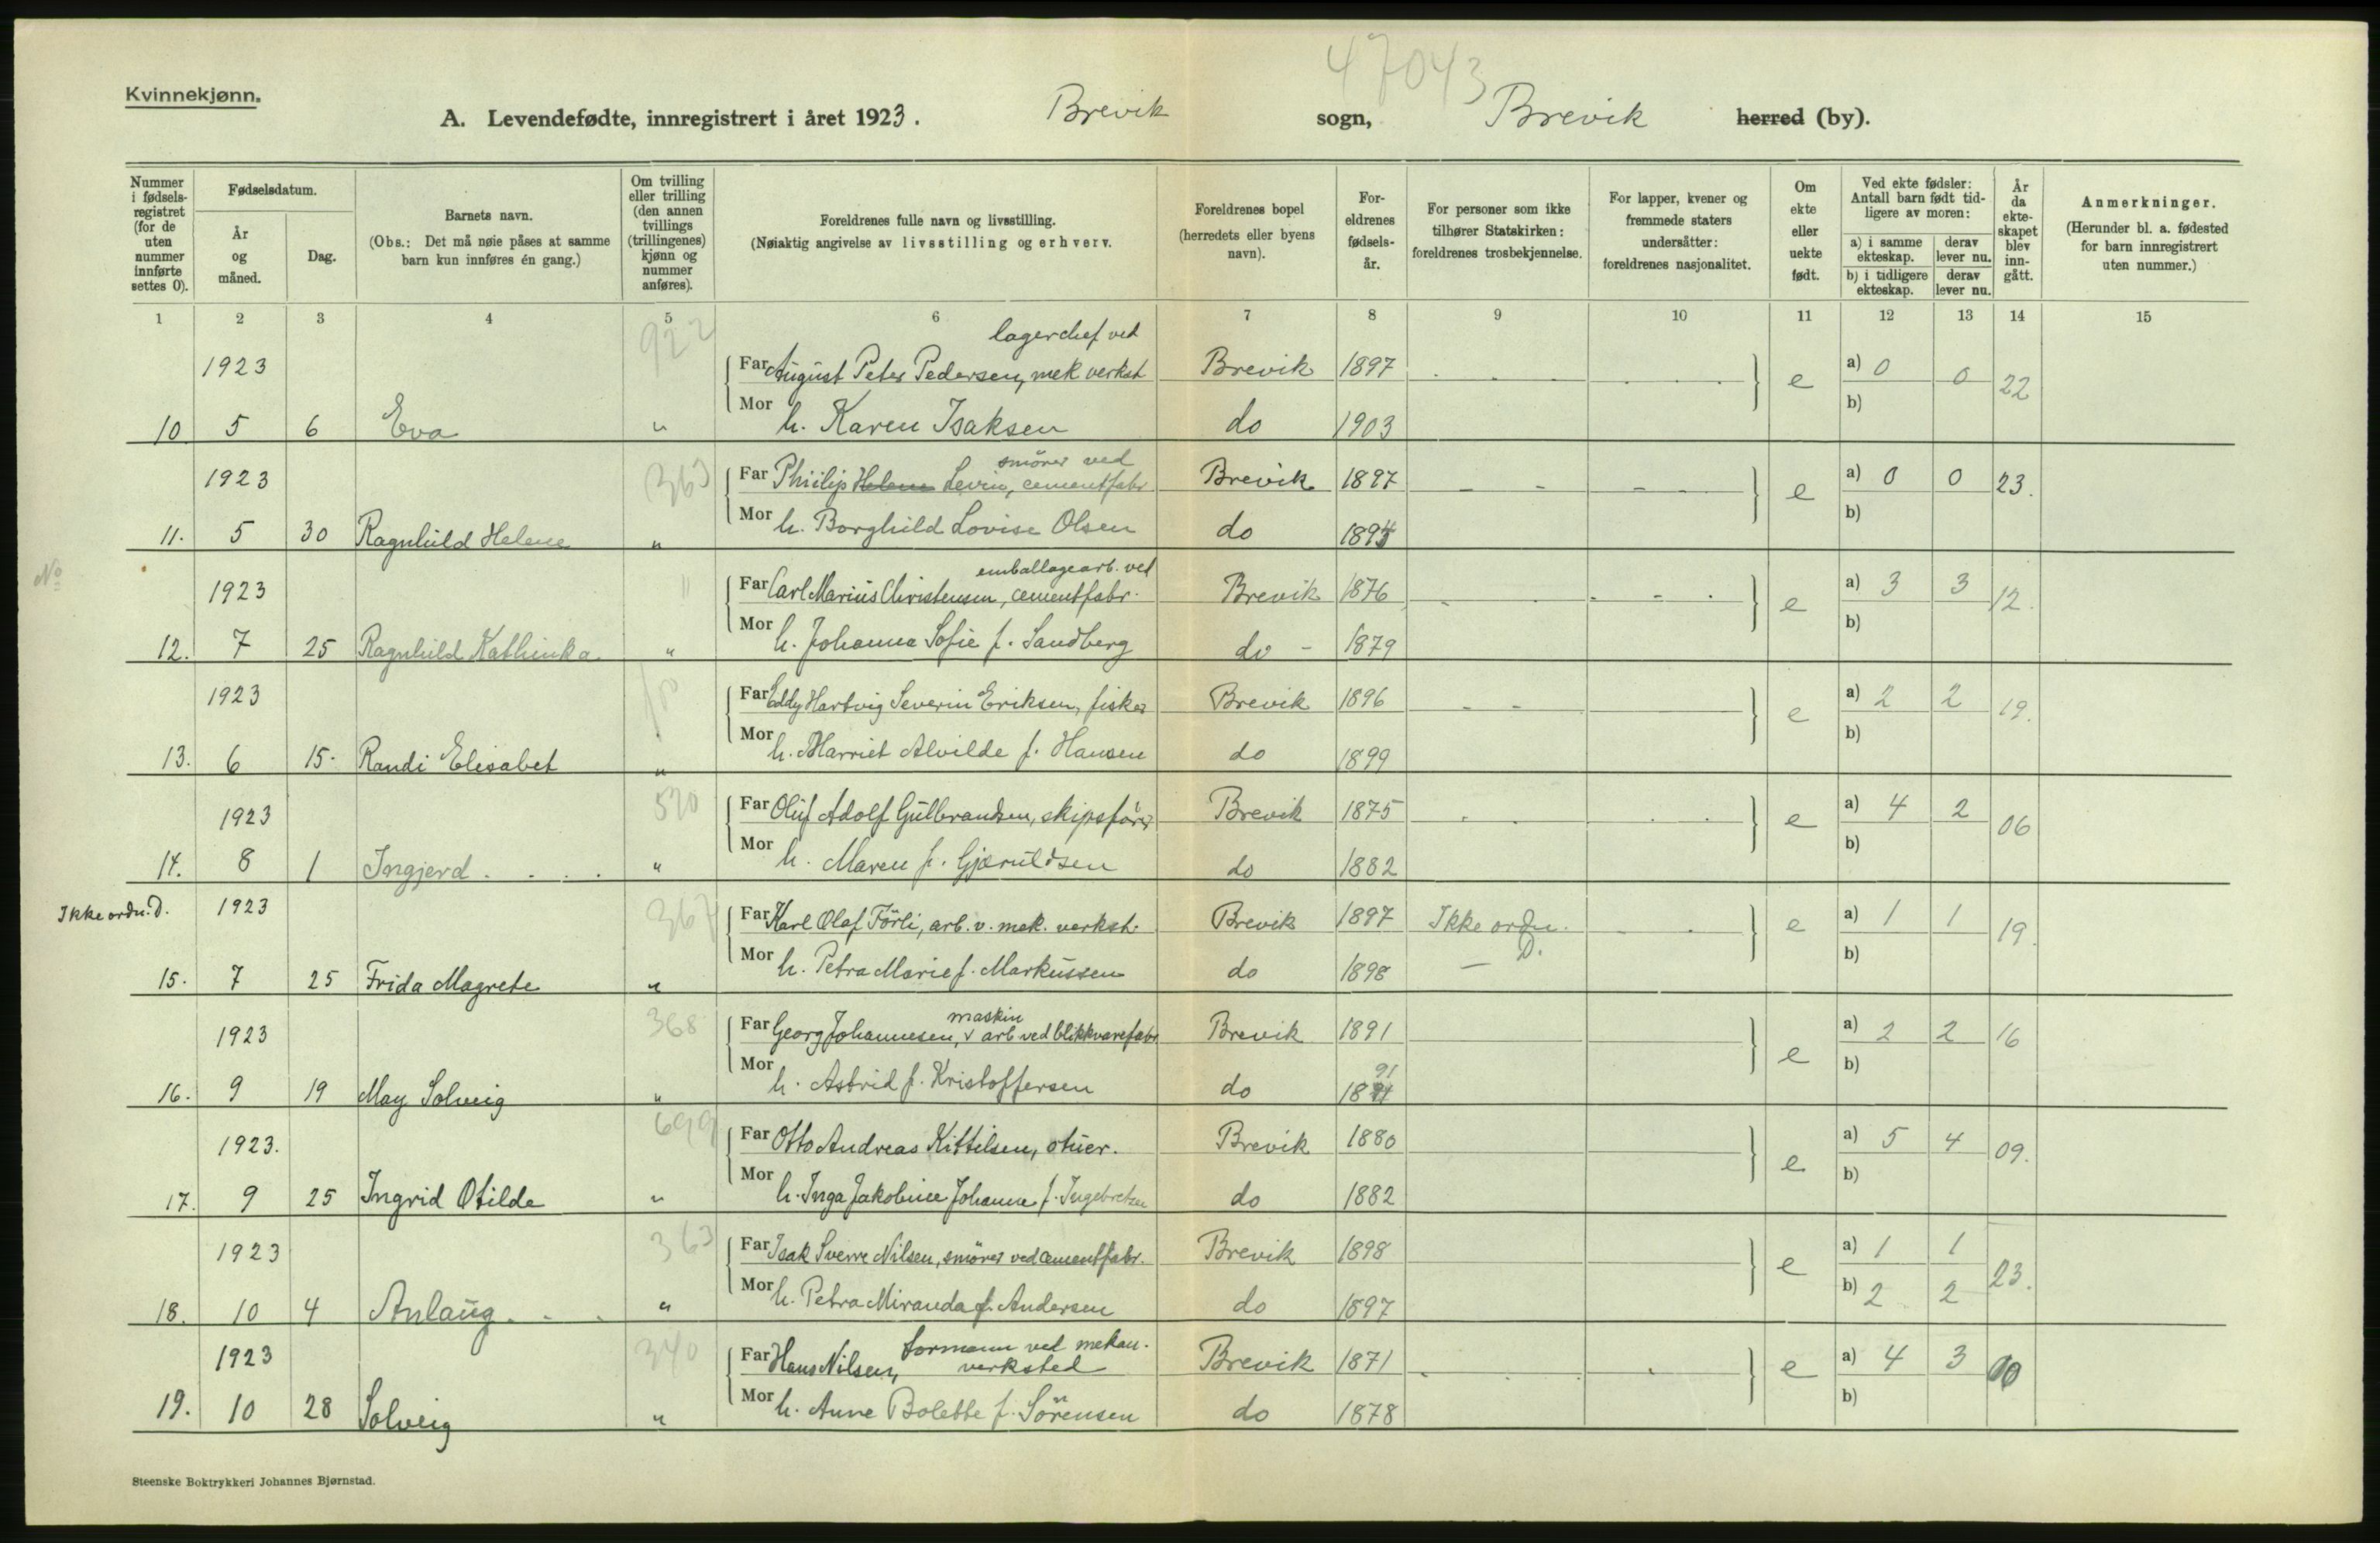 47043
Kvinnekjønn.
A. Levendefødte, innregistrert i året 1923. Brevik sogn, Brevik herred (by).
Nummer i fødselsregistret (for de uten nummer innførte settes 0).
Fødselsdatum.
År og måned.
Dag.
Barnets navn.
(Obs.: Det må nøie påses at samme barn kun innføres én gang.)
Om tvilling eller trilling (den annen tvillings (trillingenes) kjønn og nummer anføres).
Foreldrenes fulle navn og livsstilling.
(Nøiaktig angivelse av livsstilling og erhverv.
Foreldrenes bopel (herredets eller byens navn).
Foreldrenes fødselsår.
For personer som ikke tilhører Statskirken: foreldrenes trosbekjennelse.
For lapper, kvener og fremmede staters undersåtter: foreldrenes nasjonalitet.
Om ekte eller uekte født.
Ved ekte fødsler: Antall barn født tidligere av moren:
a) i samme ekteskap. derav lever nu.
b) i tidligere ekteskap. derav lever nu.
År da ekteskapet blev inngått.
Anmerkninger.
(Herunder bl. a. fødested for barn innregistrert uten nummer.)
1 2 3 4 5 6 7 8 9 10 11 12 13 14 15
922 lagerchef ved
1923 Far August Peter Pedersen, mek verkst Brevik 1897 e a) 0 0 22
10 5 6 Eva " Mor h. Karen Isaksen do 1903 b)
363 smörer ved
1923 Far Philip Helene Levin, cementfabr Brevik 1897 e a) 0 0 23.
11. 5 30 Ragnhild Helene " Mor h. Borghild Lovise Olsen do 1894 b)
No
emballagearb. ved
1923 " Far Carl Marius Christensen, cementfabr. Brevik 1876 e a) 3 3 12.
12. 7 25 Ragnhild Kathinka. " Mor h. Johanna Sofie f. Sandberg do - 1879 b)
1923 Far Eddy Hartvig Severin Eriksen, fisker Brevik 1896 e a) 2 2 19.
13. 6 15. Randi Elisabet " Mor h. Harriet Alvilde f. Hansen do 1899 b)
1923 520 Far Oluf Adolf Gulbrandsen, skipsförer Brevik 1875 e a) 4 2 06
14. 8 1 Ingjerd . . . . " Mor h. Maren f. Gjæruldsen do 1882 b)
Ikke ordn. D. 1923 367 Far Karl Olaf Törli, arb. v. mek. verkst. Brevik 1897 Ikke ordn. D. e a) 1 1 19.
15. 7 25 Frida Magrete " Mor h. Petra Marie f. Markussen do 1898 — b)
maskin
1923 368 Far Georg Johannesen, v arb ved blikkvarefabr Brevik 1891 e a) 2 2 16
91
16. 9 19 May Solveig " Mor h. Astrid f. Kristoffersen do 18 b)
1923. 699 Far Otto Andreas Kittilsen, stuer. Brevik 1880 e a) 5 4 09.
17. 9 25 Ingrid Otilde " Mor h. Inga Jakobine Johanne f. Ingebretsen do 1882 b)
1923 363 Far Isak Sverre Nilsen, smörer ved cementfabr. Brevik 1898 e a) 1 1 23.
18. 10 4 Anlaug . . . " Mor h. Petra Miranda f. Andersen do 1897 b) 2 2
formann ved mekan.
1923 340 Far Hans Nilsen, verksted Brevik 1871 e a) 4 3 00
19. 10 28 Solveig " Mor h. Anne Bolette f. Sörensen do 1878 b)
Steenske Boktrykkeri Johannes Bjørnstad.